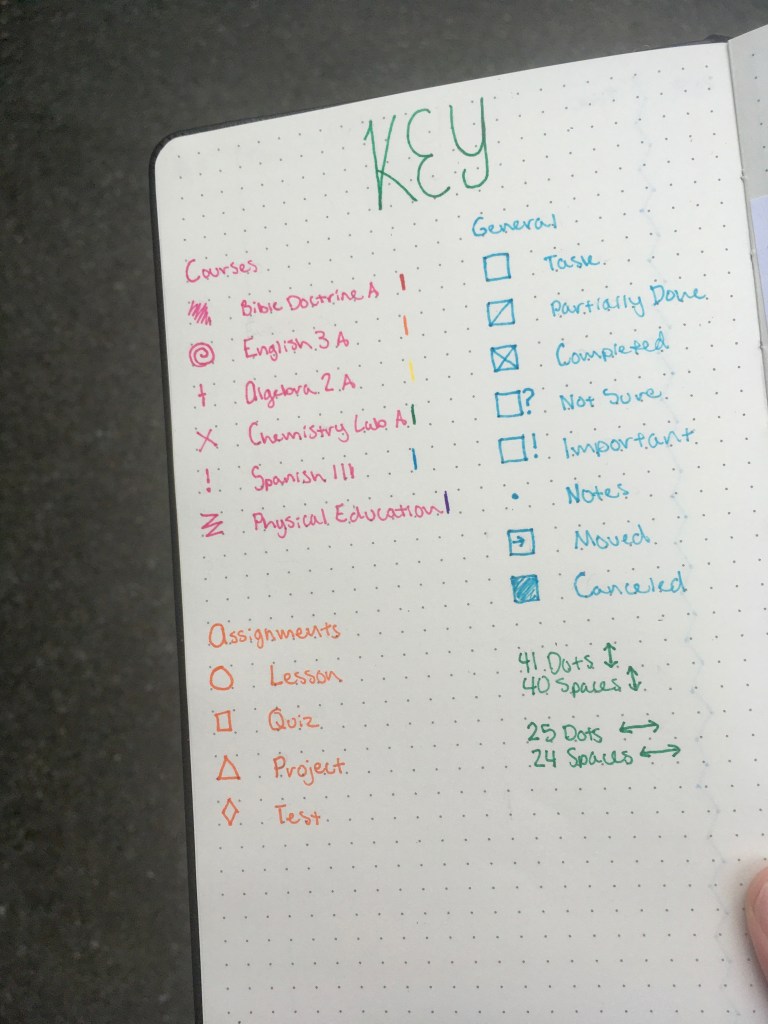 KEY
Courses
Bible Doctrine A
English 3 A
Algebra 2 A
Chemistry Lab A
Spanish III
Physical Education
General
Task
Partially Done
Completed
? Not Sure
! Important
Notes
Moved
Canceled
Assignments
Lesson
Quiz
Project
Test
41 Dots ↕
40 Spaces ↕
25 Dots ↔
24 Spaces ↔